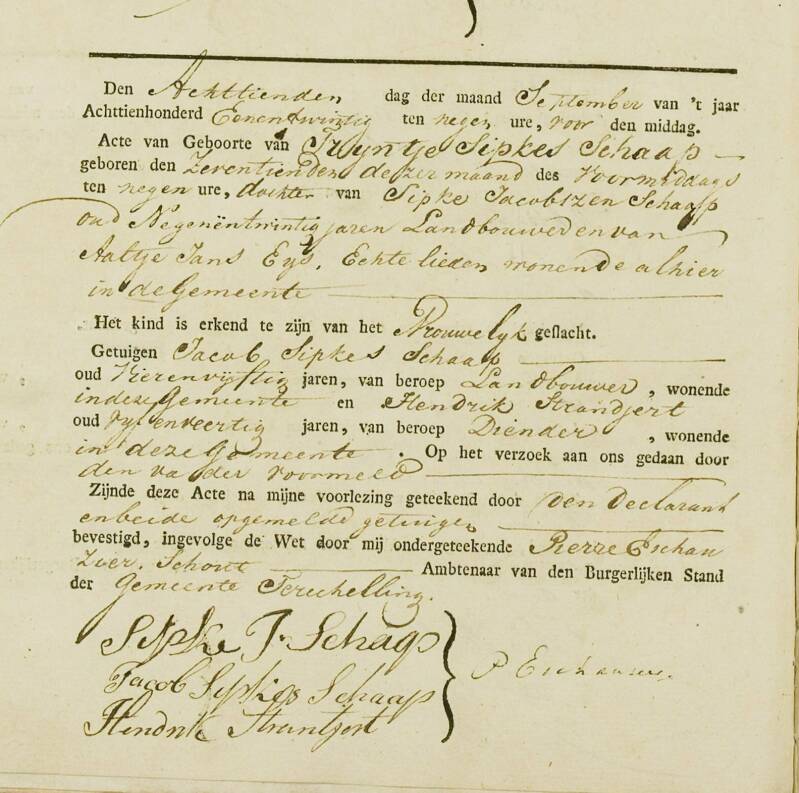 Den Achttienden dag der maand September van 't jaar
Achttienhonderd Eenentwintig ten negen ure, voor den middag.
Acte van Geboorte van Truyntje Sipkes Schaap
geboren den Zeventienden dezer maand des Voormiddags
ten negen ure, dochter van Sipke Jacobszen Schaap
oud Negenëntwintig jaren Landbouwer en van
Aaltje Jans Eys, Echte lieden wonende alhier
in de Gemeente
Het kind is erkend te zijn van het Vrouwelyk geslacht.
Getuigen Jacob Sipkes Schaap
oud Vierenvijftig jaren, van beroep Landbouwer, wonende
in deze Gemeente en Hendrik Strandjert
oud Vyfenveertig jaren, van beroep Diender, wonende
in deze Gemeente. Op het verzoek aan ons gedaan door
den vader voormeld
Zijnde deze Acte na mijne voorlezing geteekend door den declarant
en beide opgemelde getuigen
bevestigd, ingevolge de Wet door mij ondergeteekende Pierre Eschau
zier, Schout Ambtenaar van den Burgerlijken Stand
der Gemeente Terschelling.
Sipke J. Schaap
Jacob Sipkes Schaap
Hendrik Strantjert
P Eschauzier